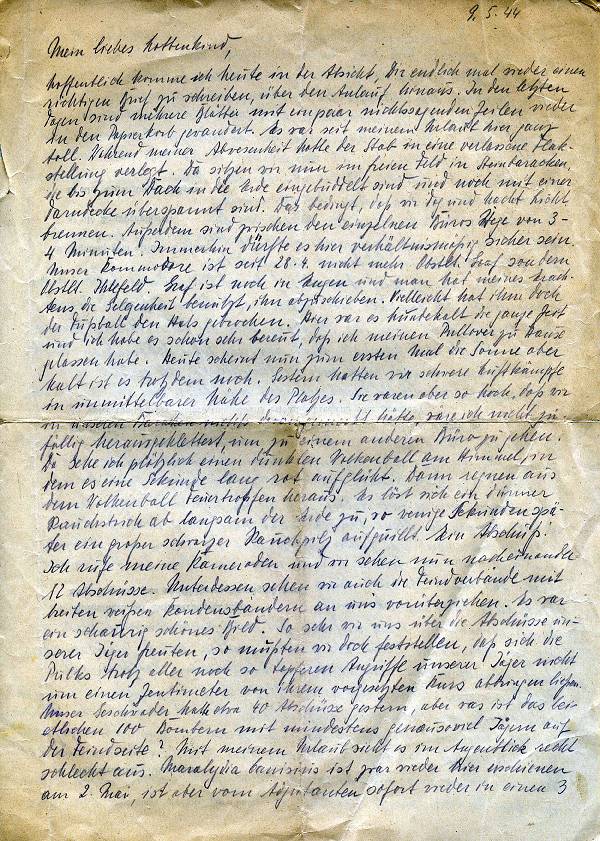 9.5.44
Mein liebes Lottenkind,
hoffentlich komme ich heute in der Absicht, Dir endlich mal wieder einen
richtigen Brief zu schreiben, über den Anlauf hinaus. In den letzten
Tagen sind mehrere Blätter mit ein paar nichtssagenden Zeilen wieder
in den Papierkorb gewandert. Es war seit meinem Urlaub hier ganz
toll. Während meiner Abwesenheit hatte der Stab in eine verlassene Flak-
stellung verlegt. Da sitzen wir nun im freien Feld in Steinbaracken,
die bis zum Dach in die Erde eingebuddelt sind und noch mit einer
Tarndecke überspannt sind. Das bedingt, daß wir Tag und Nacht Licht
brennen. Außerdem sind zwischen den einzelnen Büros Wege von 3-
4 Minuten. Immerhin dürfte es hier verhältnismäßig sicher sein.
Unser Kommodore ist seit 28.4. nicht mehr Obstlt. Graf sondern
Obstlt. Ihlefeld. Graf ist noch in und man hat meines Erach-
tens die Gelegenheit benützt, ihn abzuschieben. Vielleicht hat ihm doch
der Fußball den Hals gebrochen. Hier war es hundekalt die ganze Zeit
und ich habe es schon sehr bereut, daß ich meinen Pullover zu Hause
gelassen habe. Heute scheint nun zum ersten Mal die Sonne aber
kalt ist es trotzdem noch. Gestern hatten wir schwere Luftkämpfe
in unmittelbarer Nähe des Platzes. Sie waren aber so hoch, daß wir
in unseren nichts hätte, wäre ich nicht zu-
fällig herausgeklettert, um zu einem anderen Büro zu gehen.
Da sehe ich plötzlich einen dunklen Wolkenball am Himmel, in
dem es eine Sekunde lang rot aufglüht. Dann regnen aus
dem Wolkenball Feuertropfen heraus. Es löst sich ein dünner
Rauchstrich ab langsam der Erde zu, wo wenige Sekunden spä-
ter ein großer schwarzer Rauchpilz aufquillt. Ein Abschuß!
Ich rufe meine Kameraden und wir sehen nun nacheinander
12 Abschüsse. Unterdessen sehen wir auch die Feindverbände mit
breiten weißen Kondensbändern an uns vorüberziehen. Es war
ein schaurig schönes Bild. So sehr wir uns über die Abschüsse un-
serer Jäger freuten, so mußten wir doch feststellen, daß sich die
Pulks trotz aller noch so tapferen Angriffe unserer Jäger nicht
um einen Zentimeter von ihrem vorgesetzten Kurs abbringen ließen.
Unser Geschwader hatte etwa 40 Abschüsse gestern, aber was ist das bei
etlichen 100 Bombern mit mindestens genausoviel Jägern auf
der Feindseite? Mit meinem Urlaub sieht es im Augenblick recht
schlecht aus. ist zwar wieder hier erschienen
am 2. Mai, ist aber vom Adjutanten sofort wieder in einen 3